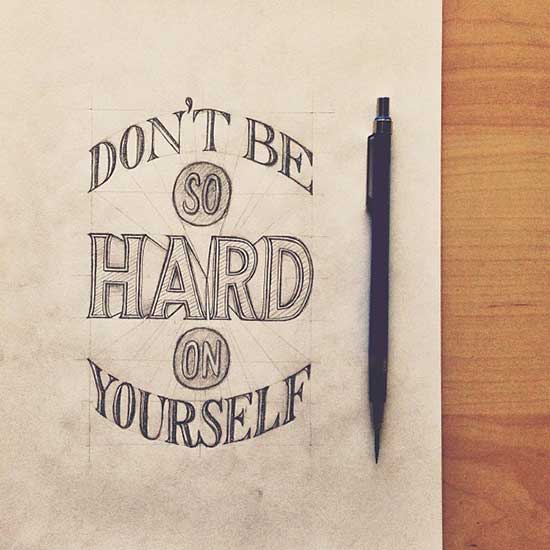 DON'T BE
SO
HARD
ON
YOURSELF